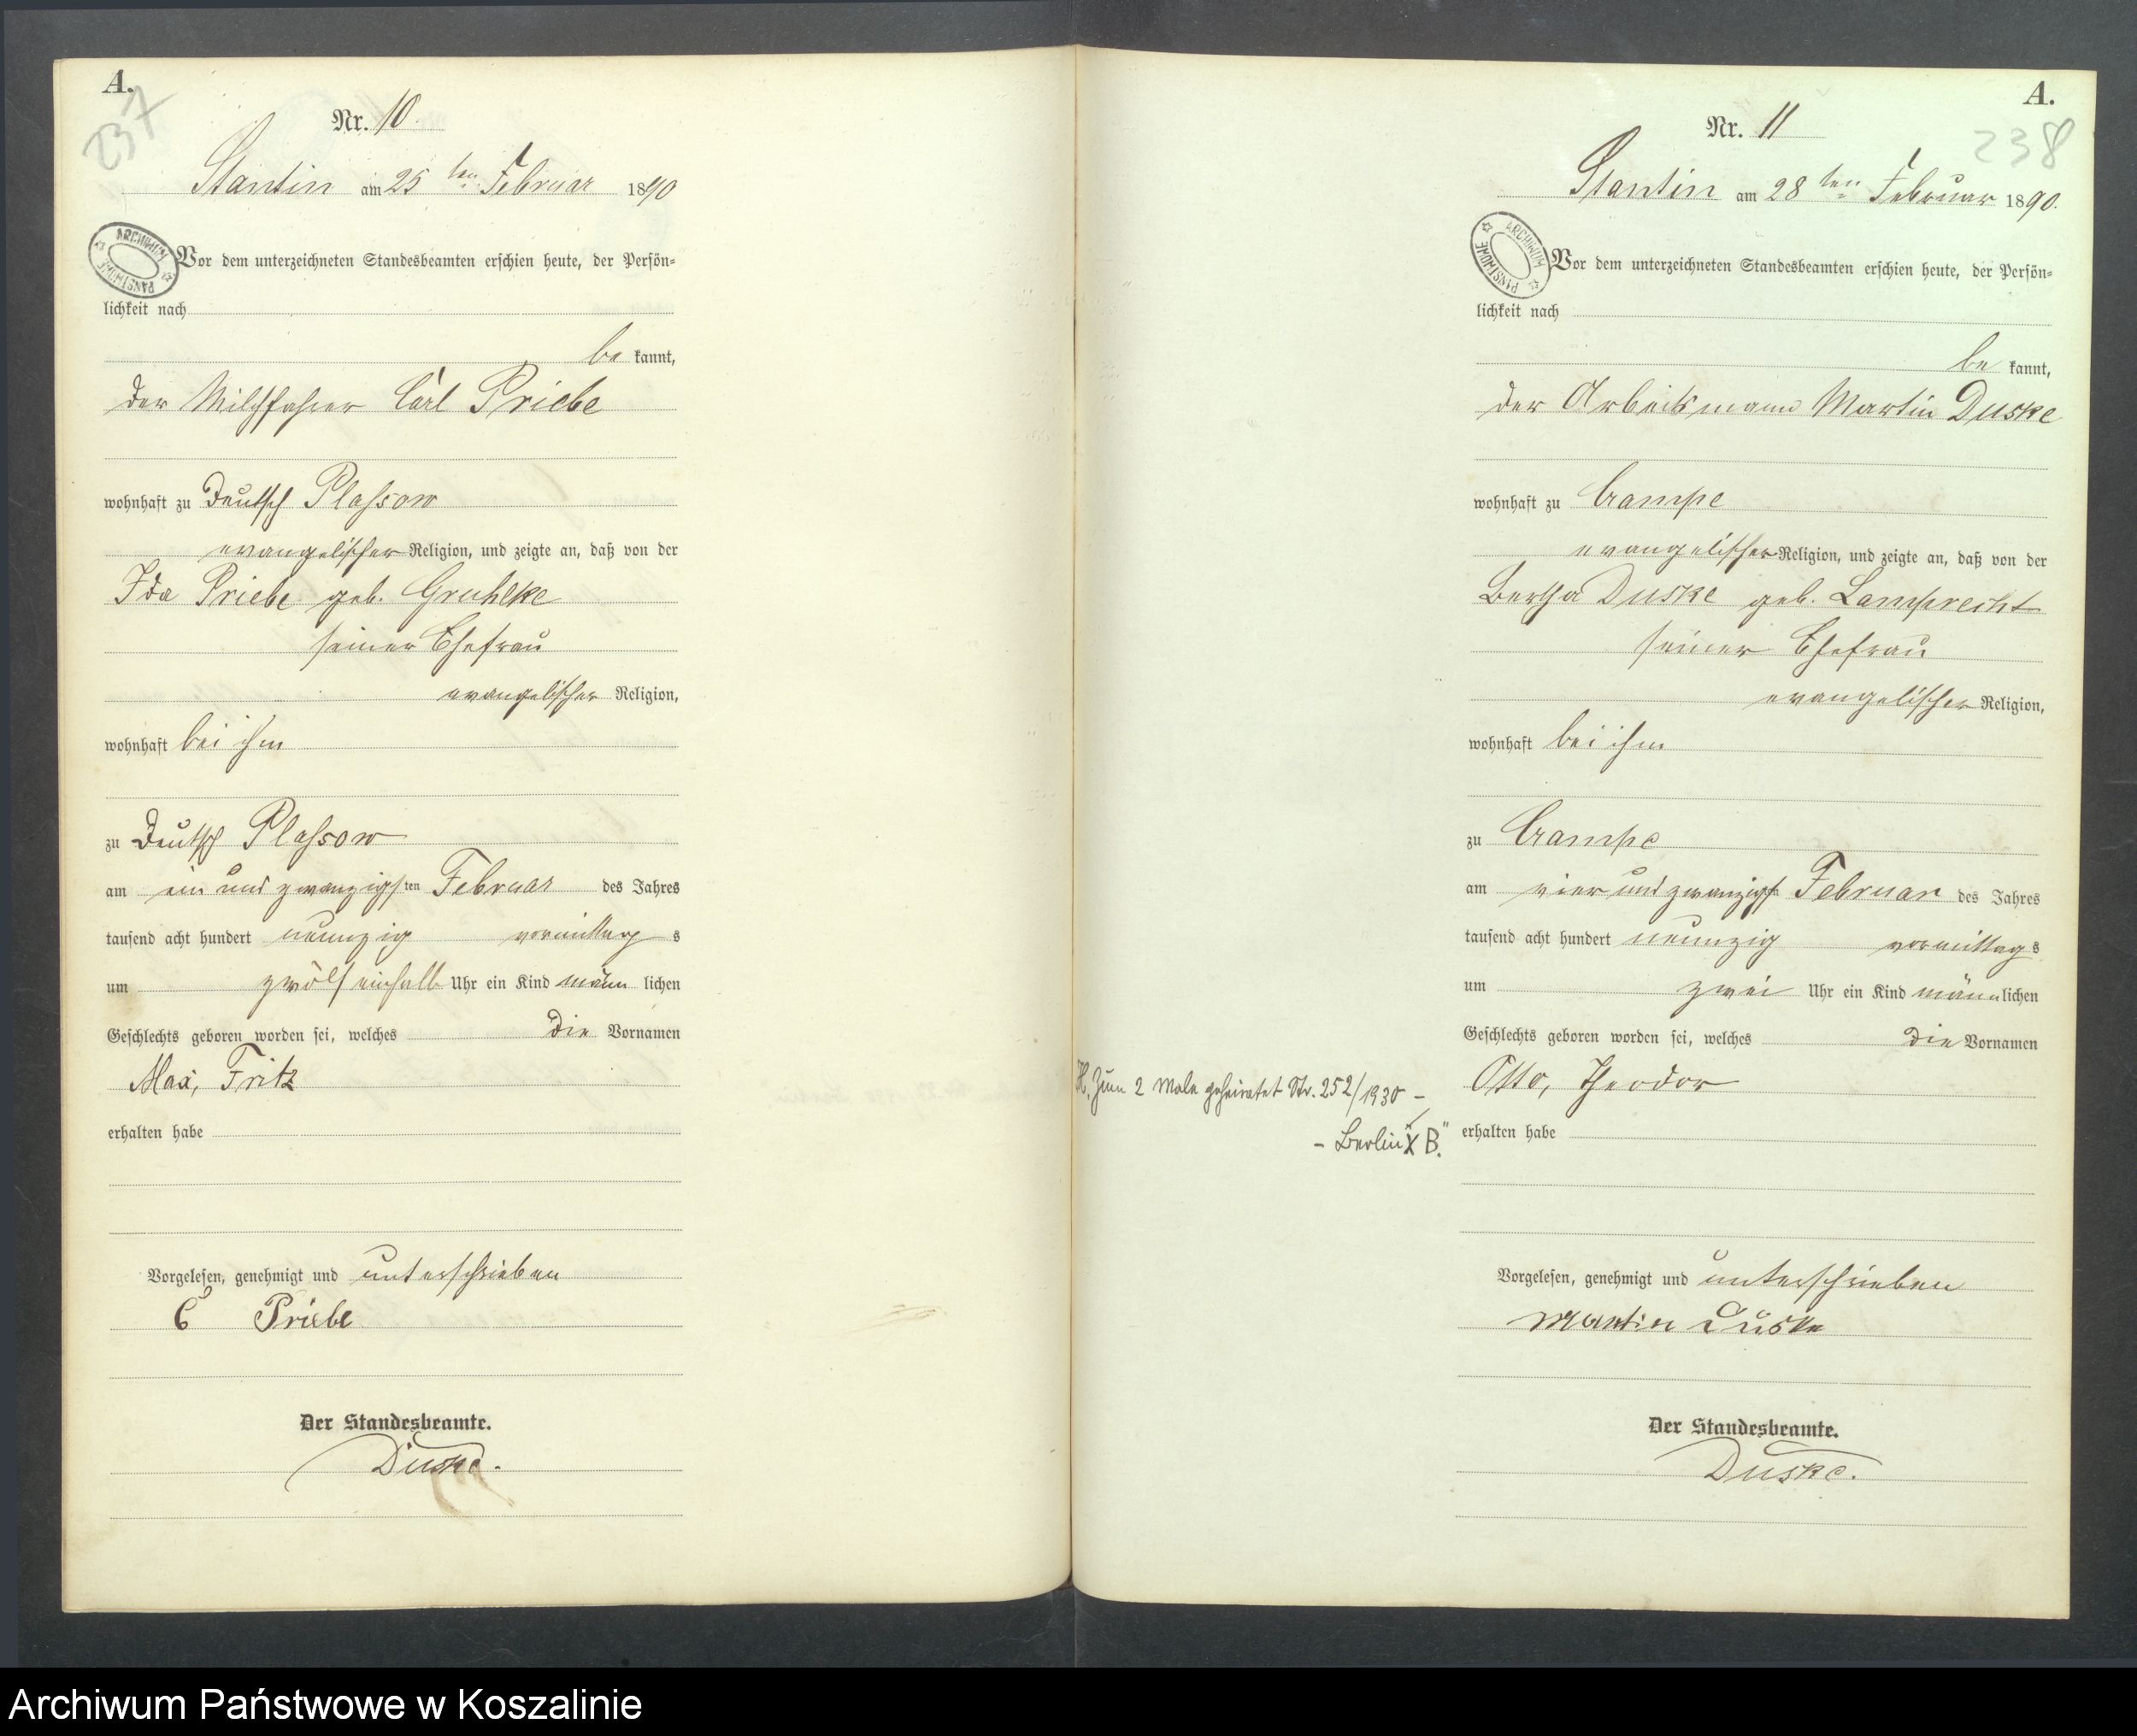 A.
237
Nr. 10
Stantin am 25 ten Februar 1890
ARCHIWUM PAŃSTWOWE
Vor dem unterzeichneten Standesbeamten erschien heute, der Persön=
lichkeit nach
be kannt,
der Milchfahrer Carl Priebe
wohnhaft zu Deutsch Plassow
evangelischer Religion, und zeigte an, daß von der
Ida Priebe geb. Gruhlke
seiner Ehefrau
evangelischer Religion,
wohnhaft bei ihm
zu Deutsch Plassow
am ein und zwanzigsten Februar des Jahres
tausend acht hundert neunzig vormittags
um zwölf einhalb Uhr ein Kind männlichen
Geschlechts geboren worden sei, welches die Vornamen
Max, Fritz
erhalten habe
Vorgelesen, genehmigt und unterschrieben
C Priebe
Der Standesbeamte.
Duske.
A.
238
Nr. 11
Stantin am 28 ten Februar 1890.
ARCHIWUM PAŃSTWOWE
Vor dem unterzeichneten Standesbeamten erschien heute, der Persön=
lichkeit nach
be kannt,
der Arbeitsmann Martin Duske
wohnhaft zu Crampe
evangelischer Religion, und zeigte an, daß von der
Bertha Duske geb. Lamprecht
seiner Ehefrau
evangelischer Religion,
wohnhaft bei ihm
zu Crampe
am vier und zwanzigsten Februar des Jahres
tausend acht hundert neunzig vormittags
um zwei Uhr ein Kind männlichen
Geschlechts geboren worden sei, welches die Vornamen
Otto, Theodor
erhalten habe
H. Zum 2 Male geheiratet Str. 252/1930 –
– Berlin "X B."
Vorgelesen, genehmigt und unterschrieben
Martin Duske
Der Standesbeamte.
Duske.
Archiwum Państwowe w Koszalinie